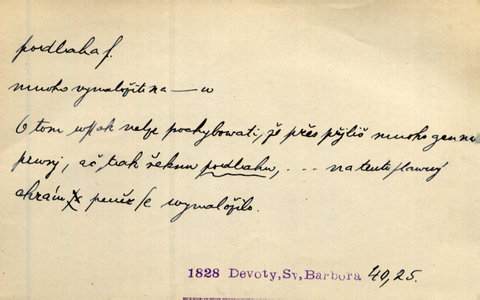 podlaha f.
mnoho vynaložiti na — u
O tom, wssak nelze pochybowati, že přes přjliš mnoho gen na
pewný, ač, tak řeknu podlahu, ... na tento slawný
chrám peněz se wynaložilo.
1828 Devoty, Sv, Barbora 40,25.